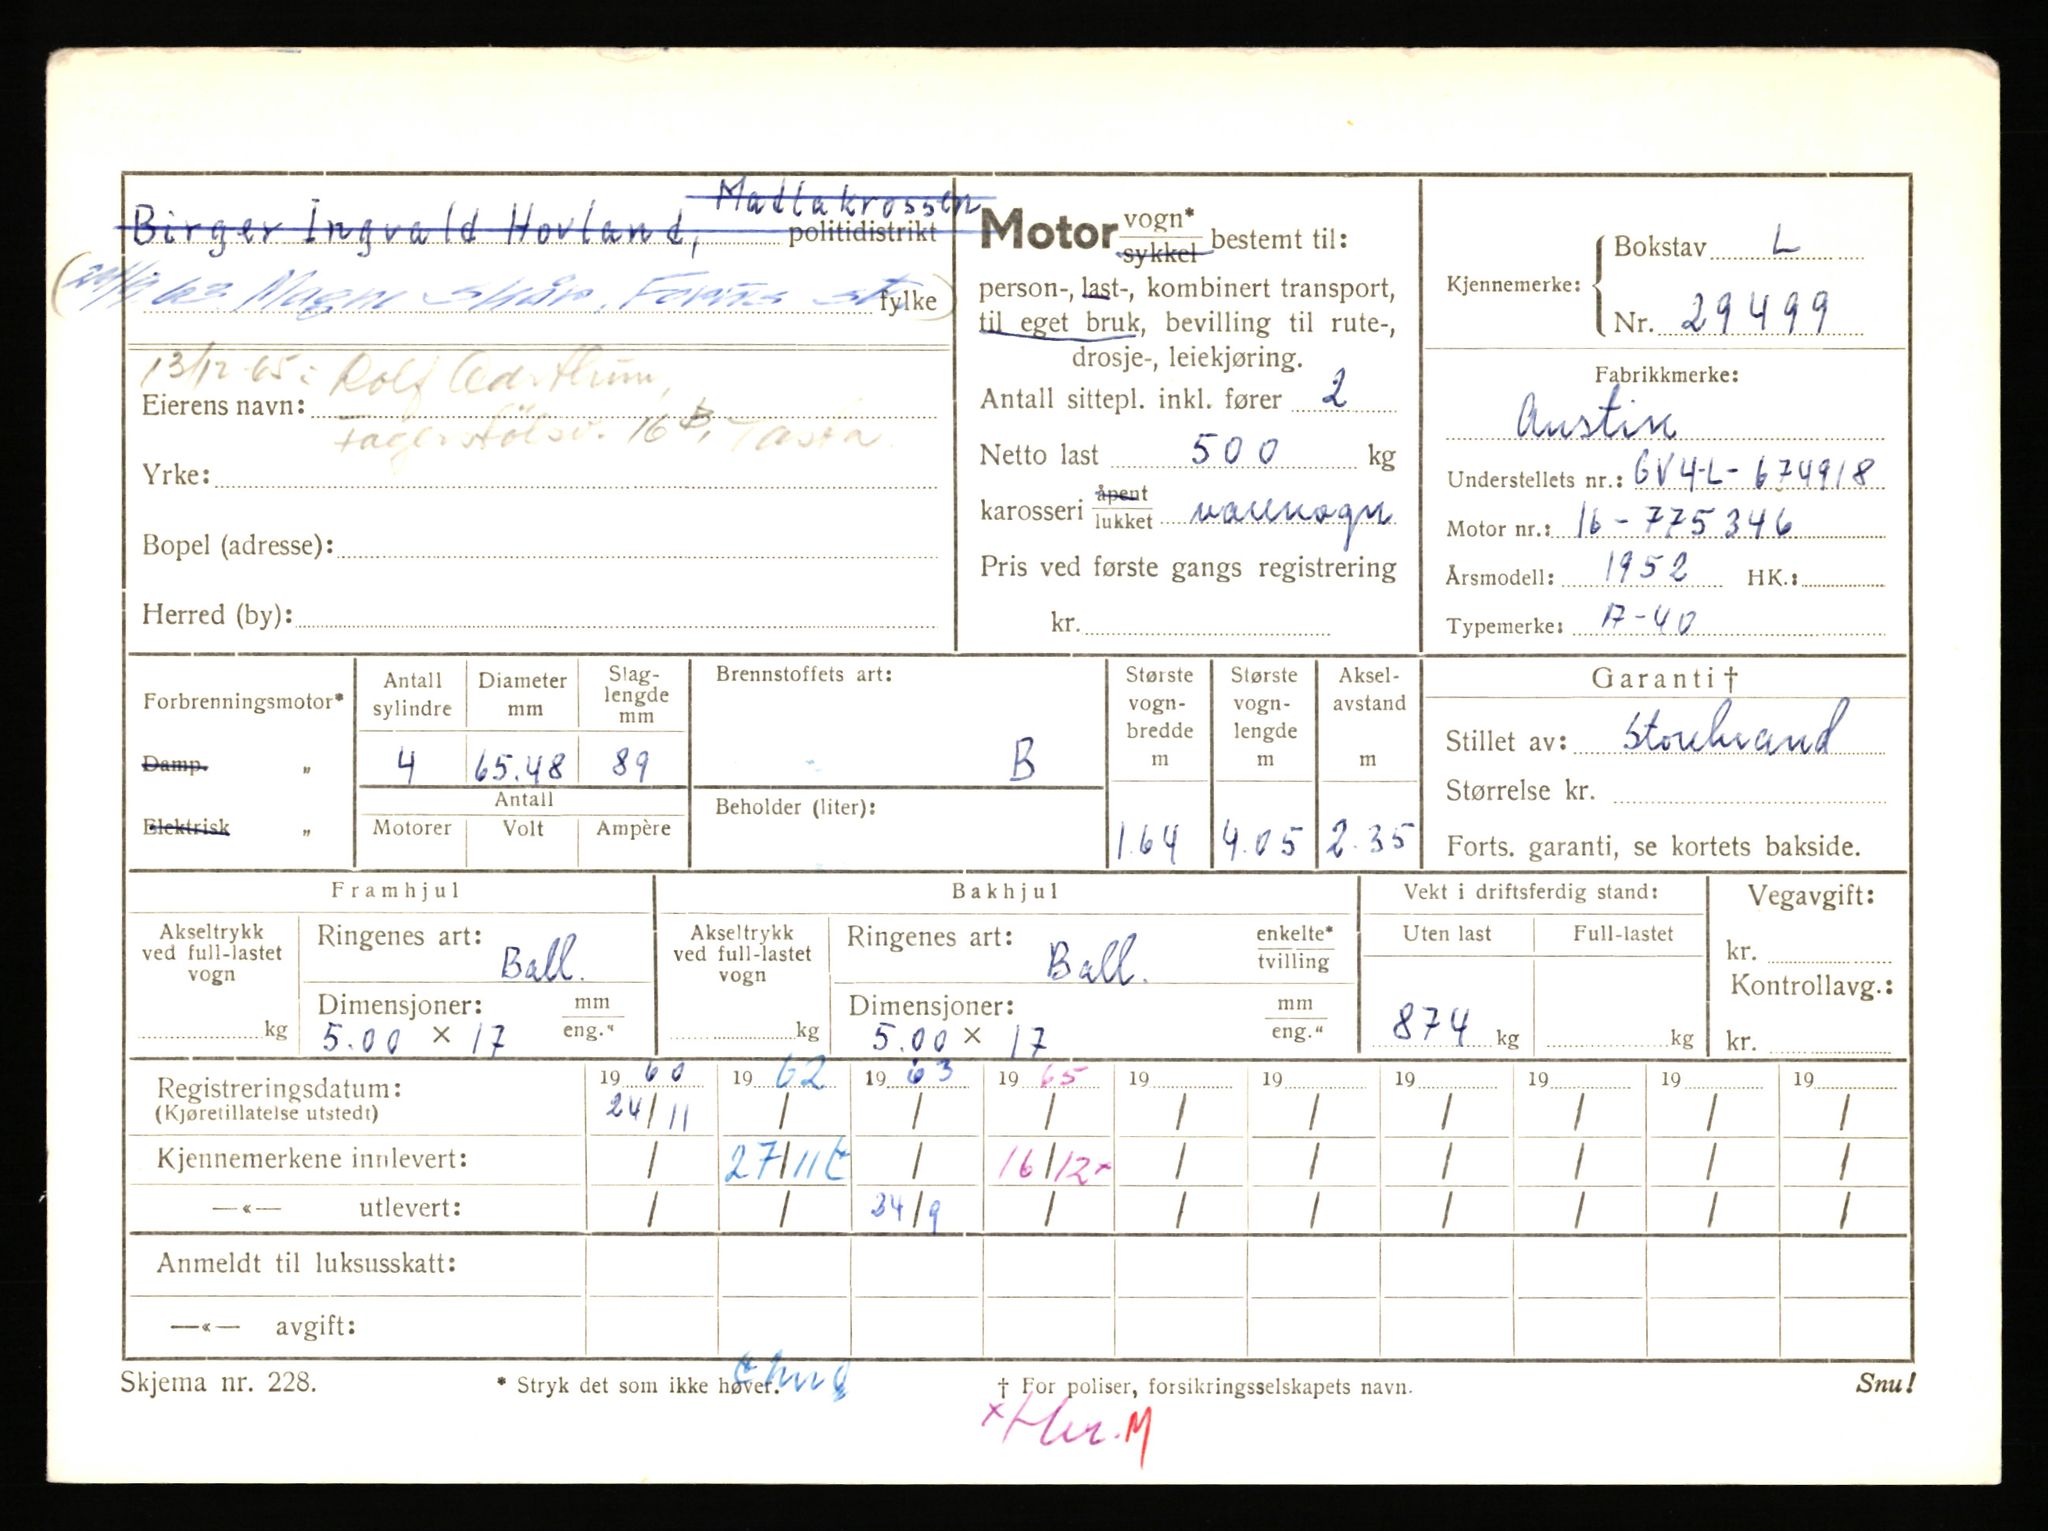 Madlakrossen
Birger Ingvald Hovland, politidistrikt
63 Magne Skår, st. fylke
13/12-65: Rolf
Eierens navn:
16 B, Tasta
Yrke:
Bopel (adresse):
Herred (by):
Motor vogn* sykkel bestemt til:
person-, last-, kombinert transport,
til eget bruk, bevilling til rute-,
drosje-, leiekjøring.
Antall sittepl. inkl. fører 2
Netto last 500 kg
karosseri åpent lukket varevogn
Pris ved første gangs registrering
kr.
Kjennemerke: Bokstav L
Nr. 29499
Fabrikkmerke:
Austin
Understellets nr.: GV4-L-674918
Motor nr.: 16-775346
Årsmodell: 1952 HK.:
Typemerke: A-40
Forbrenningsmotor*
Damp. "
Elektrisk "
Antall sylindre
Diameter mm
Slaglengde mm
4 65.48 89
Antall
Motorer Volt Ampère
Brennstoffets art:
B
Beholder (liter):
Største vognbredde m
1.64
Største vognlengde m
4.05
Akselavstand m
2.35
Garanti †
Stillet av: Storebrand
Størrelse kr.
Forts. garanti, se kortets bakside.
Framhjul
Akseltrykk ved full-lastet vogn
kg
Ringenes art: Ball.
Dimensjoner: mm eng."
5.00 × 17
Bakhjul
Akseltrykk ved full-lastet vogn
kg
Ringenes art: Ball. enkelte* tvilling
Dimensjoner: mm eng."
5.00 × 17
Vekt i driftsferdig stand:
Uten last Full-lastet
874 kg kg
Vegavgift:
kr.
Kontrollavg.:
kr.
Registreringsdatum: 19 60 19 62 19 63 19 65 19 19 19 19 19 19
(Kjøretillatelse utstedt) 24/11 / / / / / / / / /
Kjennemerkene innlevert: / 27/11 / 16/12 x / / / / / /
—«— utlevert: / / 24/9 / / / / / / /
Anmeldt til luksusskatt:
—«— avgift:
Skjema nr. 228. * Stryk det som ikke høver. † For poliser, forsikringsselskapets navn. Snu!
x M